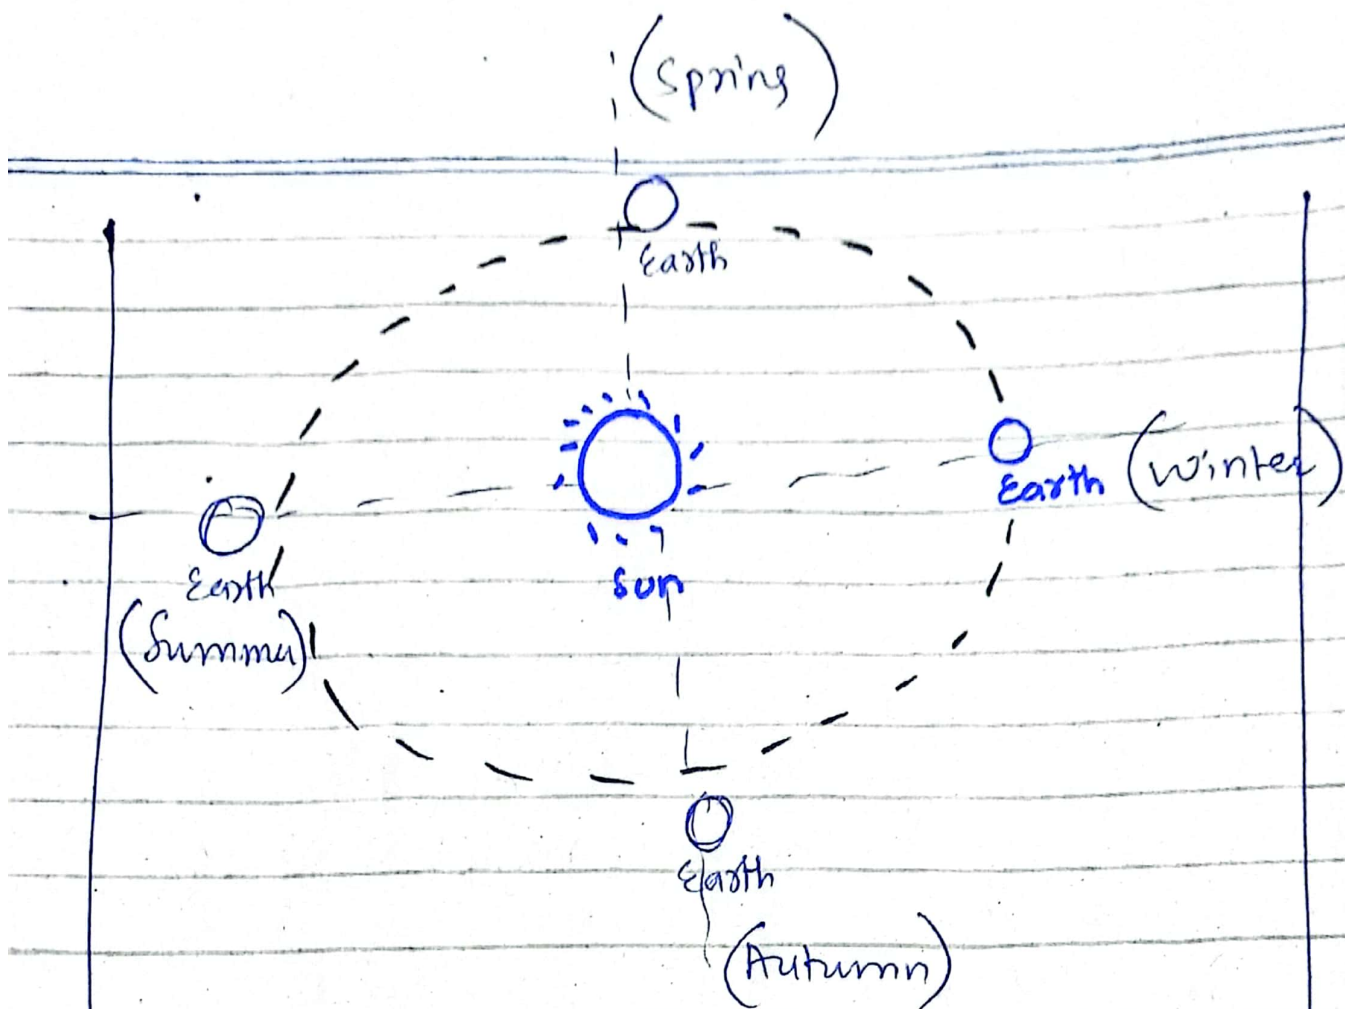 (Spring)
Earth
Earth (Winter)
Earth
(Summer)
Sun
Earth
(Autumn)